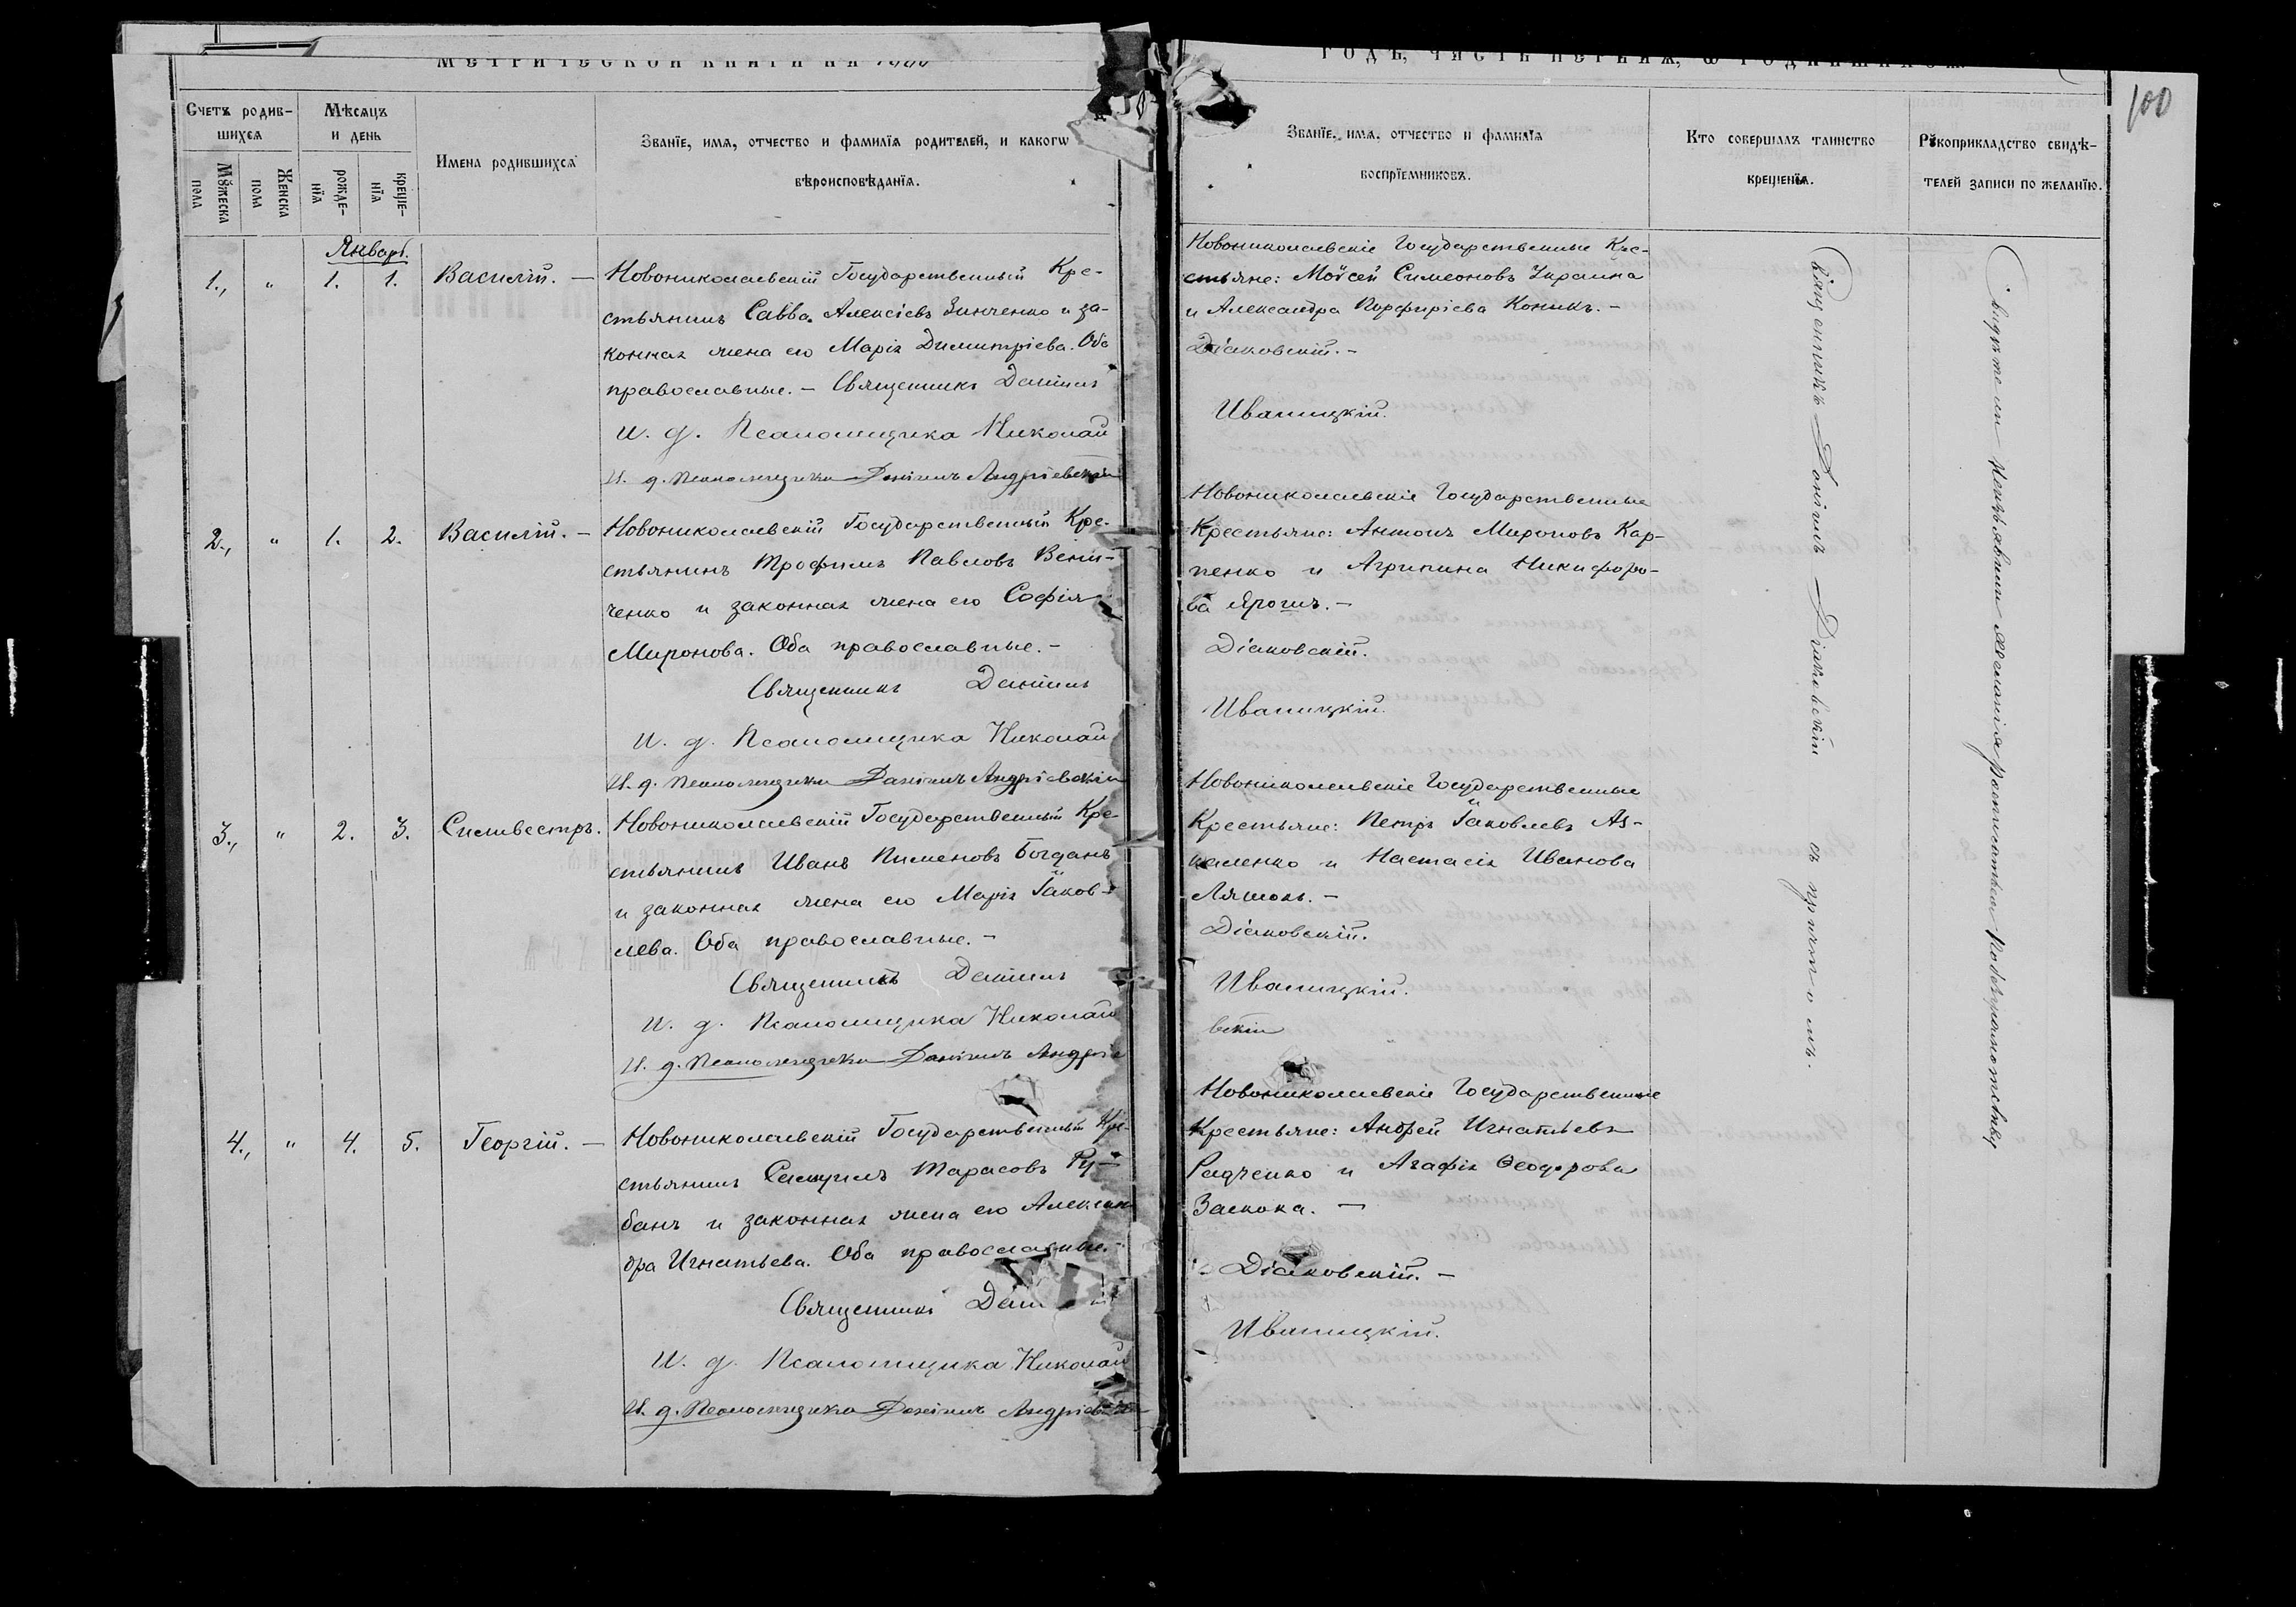 МЕТРИЧЕСКОЙ КНИГИ НА
ГОДЪ, ЧАСТЬ ПЕРВАЯ, Ѡ РОДИВШИХСЯ.
100
Счетъ родив-
шихся
Мѣсяцъ
и день
Мꙋжеска
пола
Женска
пола
рожде-
нїя
креще-
нїя
Имена родившихся
Званїе, имя, отчество и фамилїя родителей, и какогѡ
вѣроисповѣданїя.
Званїе, имя, отчество и фамилїя
воспрїемниковъ.
Кто совершалъ таинство
крещенїя.
Рꙋкоприкладство свидѣ-
телей записи по желанїю.
Январь.
1., " 1. 1. Василій. —
Новониколаевскій Государственный Кре-
стьянинъ Савва Алексіевъ Зинченко и за-
конная жена его Марія Димитріева. Оба
православные. — Священникъ Даніилъ
И. д. Псаломщика Николай
И. д. Псаломщика Даніилъ Андріевскій
Новониколаевскіе Государственные Кре-
стьяне: Мойсей Симеоновъ Украина
и Александра Порфиріева Коникъ. —
Діаковскій. —
Иваницкій.
2., " 1. 2. Василій. —
Новониколаевскій Государственный Кре-
стьянинъ Трофимъ Павловъ
ченко и законная жена его Софія
Миронова. Оба православные. —
Священникъ Даніилъ
И. д. Псаломщика Николай
И. д. Псаломщика Даніилъ Андріевскій
Новониколаевскіе Государственные
Крестьяне: Антонъ Мироновъ Кар-
пенко и Агрипина Никифоро-
ва Ярошъ. —
Діаковскій.
Иваницкій.
3., " 2. 3. Сильвестръ.
Новониколаевскій Государственный Кре-
стьянинъ Иванъ Пименовъ Богданъ
и законная жена его Марія Іаков-
лева. Оба православные. —
Священникъ Даніилъ
И. д. Псаломщика Николай
И. д. Псаломщика Даніилъ Андріе
Новониколаевскіе Государственные
Крестьяне: Петръ Іаковлевъ
и Настасія Иванова
Діаковскій.
Иваницкій.
вскій
4., " 4. 5. Георгій. —
Новониколаевскій Государственный Кре-
стьянинъ Самуилъ Тарасовъ Ру-
банъ и законная жена его Алексан-
дра Игнатьева. Оба православные. —
Священникъ
И. д. Псаломщика Николай
И. д. Псаломщика Даніилъ
Новониколаевскіе Государственные
Крестьяне: Андрей Игнатьевъ
Радченко и Агафія Ѳеодорова
Заскока. —
Діаковскій. —
Иваницкій.
Священникъ Даніилъ Діаковскій съ причтомъ.
Свидѣтели